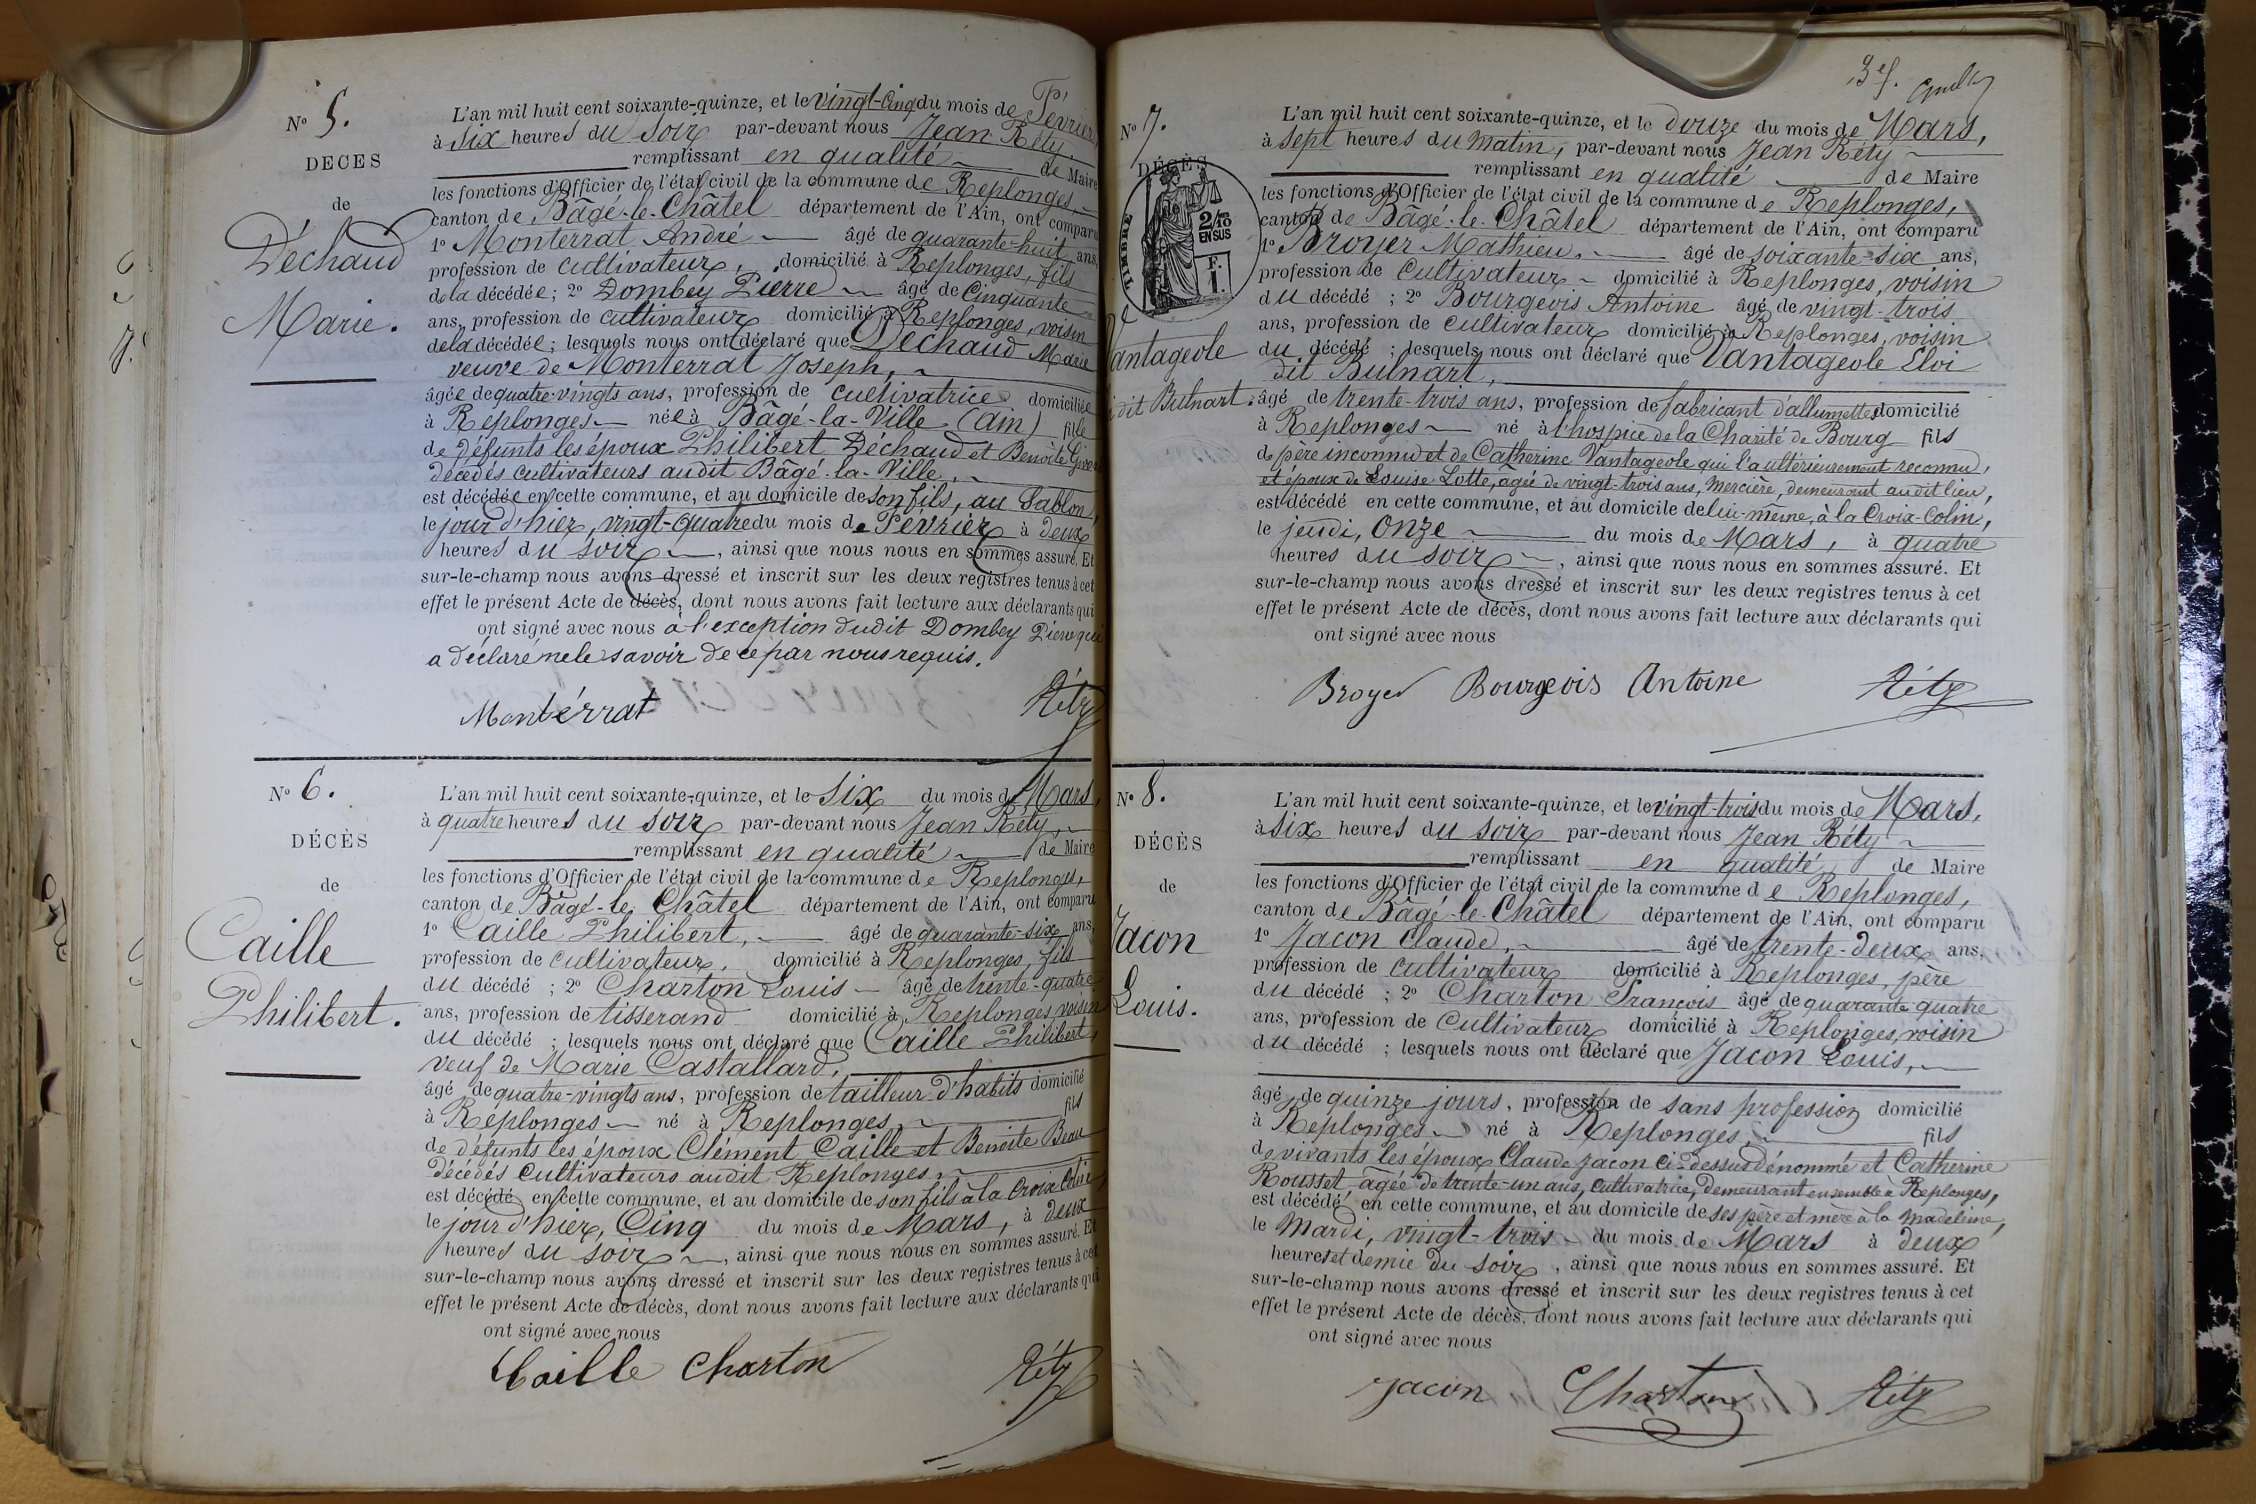 No 5.
DÉCÈS
de
Déchaud
Marie.
L'an mil huit cent soixante-quinze, et le vingt-cinq du mois de Février,
à six heures du soir par-devant nous Jean Réty
remplissant en qualité de Maire
les fonctions d'Officier de l'état civil de la commune de Replonges,
canton de Bâgé-le-Châtel département de l'Ain, ont comparu
1o Monterrat André âgé de quarante-huit ans,
profession de cultivateur, domicilié à Replonges, fils
de la décédée ; 2o Dombey Pierre âgé de cinquante
ans, profession de cultivateur domicilié à Replonges, voisin
de la décédée ; lesquels nous ont déclaré que Déchaud Marie
veuve de Monterrat Joseph,
âgée de quatre-vingts ans, profession de cultivatrice domiciliée
à Replonges née à Bâgé-la-Ville (Ain) fille
de défunts les époux Philibert Déchaud et Benoîte
décédés cultivateurs audit Bâgé-la-Ville,
est décédée en cette commune, et au domicile de son fils, au Sablon,
le jour d'hier, vingt-quatre du mois de Février à deux
heures du soir, ainsi que nous nous en sommes assuré. Et
sur-le-champ nous avons dressé et inscrit sur les deux registres tenus à cet
effet le présent Acte de décès, dont nous avons fait lecture aux déclarants qui
ont signé avec nous à l'exception dudit Dombey Pierre qui
a déclaré ne le savoir de ce par nous requis.
Montérrat Réty
No 6.
DÉCÈS
de
Caille
Philibert.
L'an mil huit cent soixante-quinze, et le six du mois de Mars,
à quatre heures du soir par-devant nous Jean Réty,
remplissant en qualité de Maire
les fonctions d'Officier de l'état civil de la commune de Replonges,
canton de Bâgé-le-Châtel département de l'Ain, ont comparu
1o Caille Philibert, âgé de quarante-six ans,
profession de cultivateur, domicilié à Replonges, fils
du décédé ; 2o Charton Louis âgé de trente-quatre
ans, profession de tisserand domicilié à Replonges, voisin
du décédé ; lesquels nous ont déclaré que Caille Philibert,
veuf de Marie Castallard,
âgé de quatre-vingts ans, profession de tailleur d'habits domicilié
à Replonges né à Replonges, fils
de défunts les époux Clément Caille et Benoîte Beau
décédés cultivateurs audit Replonges,
est décédé en cette commune, et au domicile de son fils à la Croix Colin,
le jour d'hier, Cinq du mois de Mars, à deux
heures du soir, ainsi que nous nous en sommes assuré. Et
sur-le-champ nous avons dressé et inscrit sur les deux registres tenus à cet
effet le présent Acte de décès, dont nous avons fait lecture aux déclarants qui
ont signé avec nous
Caille Charton Réty
No 7.
DÉCÈS
TIMBRE
2/10 EN SUS
F. 1.
de
Vantageole
dit Butnart.
L'an mil huit cent soixante-quinze, et le douze du mois de Mars,
à sept heures du matin, par-devant nous Jean Réty
remplissant en qualité de Maire
les fonctions d'Officier de l'état civil de la commune de Replonges,
canton de Bâgé-le-Châtel département de l'Ain, ont comparu
1o Broyer Mathieu, âgé de soixante-six ans,
profession de cultivateur domicilié à Replonges, voisin
du décédé ; 2o Bourgeois Antoine âgé de vingt-trois
ans, profession de cultivateur domicilié à Replonges, voisin
du décédé ; lesquels nous ont déclaré que Vantageole Eloi
dit Butnart,
âgé de trente-trois ans, profession de fabricant d'allumettes domicilié
à Replonges né à l'hospice de la Charité de Bourg fils
de père inconnu et de Catherine Vantageole qui l'a ultérieurement reconnu,
et époux de Louise Lotte, âgée de vingt-trois ans, mercière, demeurant audit lieu,
est décédé en cette commune, et au domicile de lui-même, à la Croix-Colin,
le jeudi, onze du mois de Mars, à quatre
heures du soir, ainsi que nous nous en sommes assuré. Et
sur-le-champ nous avons dressé et inscrit sur les deux registres tenus à cet
effet le présent Acte de décès, dont nous avons fait lecture aux déclarants qui
ont signé avec nous
Broyer Bourgeois Antoine Réty
No 8.
DÉCÈS
de
Jacon
Louis.
L'an mil huit cent soixante-quinze, et le vingt-trois du mois de Mars,
à six heures du soir par-devant nous Jean Réty
remplissant en qualité de Maire
les fonctions d'Officier de l'état civil de la commune de Replonges,
canton de Bâgé-le-Châtel département de l'Ain, ont comparu
1o Jacon Claude, âgé de trente-deux ans,
profession de cultivateur domicilié à Replonges, père
du décédé ; 2o Charton François âgé de quarante quatre
ans, profession de Cultivateur domicilié à Replonges, voisin
du décédé ; lesquels nous ont déclaré que Jacon Louis,
âgé de quinze jours, profession de sans profession domicilié
à Replonges né à Replonges, fils
de vivants les époux Claude Jacon ci-dessus dénommé et Catherine
Rousset âgée de trente-un ans, cultivatrice, demeurant ensemble à Replonges,
est décédé en cette commune, et au domicile de ses père et mère à la Madeleine,
le Mardi, vingt-trois du mois de Mars à deux
heures et demie du soir, ainsi que nous nous en sommes assuré. Et
sur-le-champ nous avons dressé et inscrit sur les deux registres tenus à cet
effet le présent Acte de décès, dont nous avons fait lecture aux déclarants qui
ont signé avec nous
Jacon Charton Réty